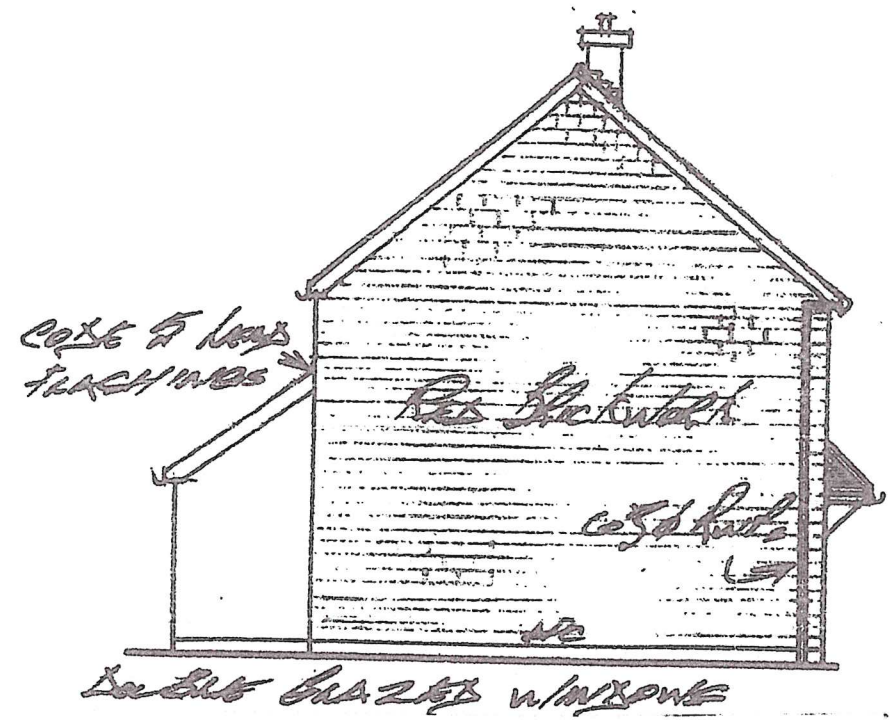 CODE 5 LEAD
FLASHINGS
RED BRICKWORK
DOUBLE GLAZED WINDOWS